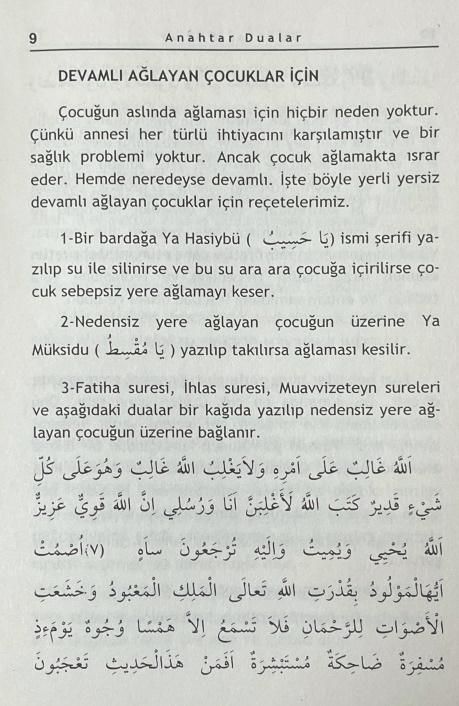 9 Anahtar Dualar
DEVAMLI AĞLAYAN ÇOCUKLAR İÇİN
Çocuğun aslında ağlaması için hiçbir neden yoktur.
Çünkü annesi her türlü ihtiyacını karşılamıştır ve bir
sağlık problemi yoktur. Ancak çocuk ağlamakta ısrar
eder. Hemde neredeyse devamlı. İşte böyle yerli yersiz
devamlı ağlayan çocuklar için reçetelerimiz.
1-Bir bardağa Ya Hasiybü ( يَا حَسِيبُ) ismi şerifi ya-
zılıp su ile silinirse ve bu su ara ara çocuğa içirilirse ço-
cuk sebepsiz yere ağlamayı keser.
2-Nedensiz yere ağlayan çocuğun üzerine Ya
Müksidu ( يَا مُقْسِطُ ) yazılıp takılırsa ağlaması kesilir.
3-Fatiha suresi, İhlas suresi, Muavvizeteyn sureleri
ve aşağıdaki dualar bir kağıda yazılıp nedensiz yere ağ-
layan çocuğun üzerine bağlanır.
اَللّٰهُ غَالِبٌ عَلَى اَمْرِهِ وَلَايَغْلِبُ اللّٰهُ غَالِبٌ وَهُوَعَلَى كُلِّ
شَيْءٍ قَدِيرٌ كَتَبَ اللّٰهُ لَأَغْلِبَنَّ اَنَا وَرُسُلِي اِنَّ اللّٰهَ قَوِيٌّ عَزِيزٌ
اَللّٰهُ يُحْيِي وَيُمِيتُ وَاِلَيْهِ تُرْجَعُونَ سأهِ (٧)اُصْمُتْ
اَيُّهَالْمَوْلُودُ بِقُدْرَتِ اللّٰهِ تَعَالَى الْمَلِكِ الْمَعْبُودُ وَخَشَعَتِ
الْأَصْوَاتِ لِلرَّحْمَانِ فَلاَ تَسْمَعُ اِلاَّ هَمْسًا وُجُوهٌ يَوْمَءِذٍ
مُسْفِرَةٌ ضَاحِكَةٌ مُسْتَبْشِرَةٌ اَفَمِنْ هَذَالْحَدِيثِ تَعْجَبُونَ